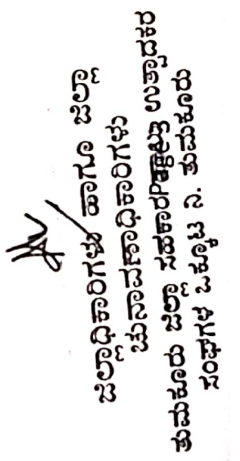 ಜಿಲ್ಲಾಧಿಕಾರಿಗಳು ಹಾಗೂ ಜಿಲ್ಲಾ
ಚುನಾವಣಾಧಿಕಾರಿಗಳು
ತುಮಕೂರು ಜಿಲ್ಲಾ ಸಹಕಾರ ಉತ್ಪಾದಕರ
ಸಂಘಗಳ ಒಕ್ಕೂಟ ನಿ. ತುಮಕೂರು